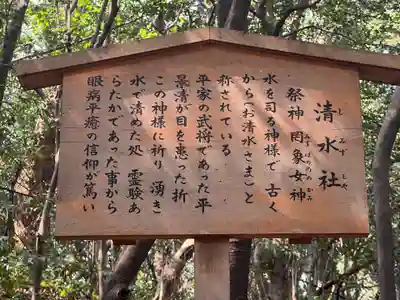 清水社
しみずしゃ
祭神 罔象女神
みずはのめのかみ
水を司る神様で 古く
から(お清水さま)と
称されている
平家の武将であった平
景清が目を患った折
この神様に祈り 湧き
水で清めた処 霊験あ
らたかであった事から
眼病平癒の信仰が篤い